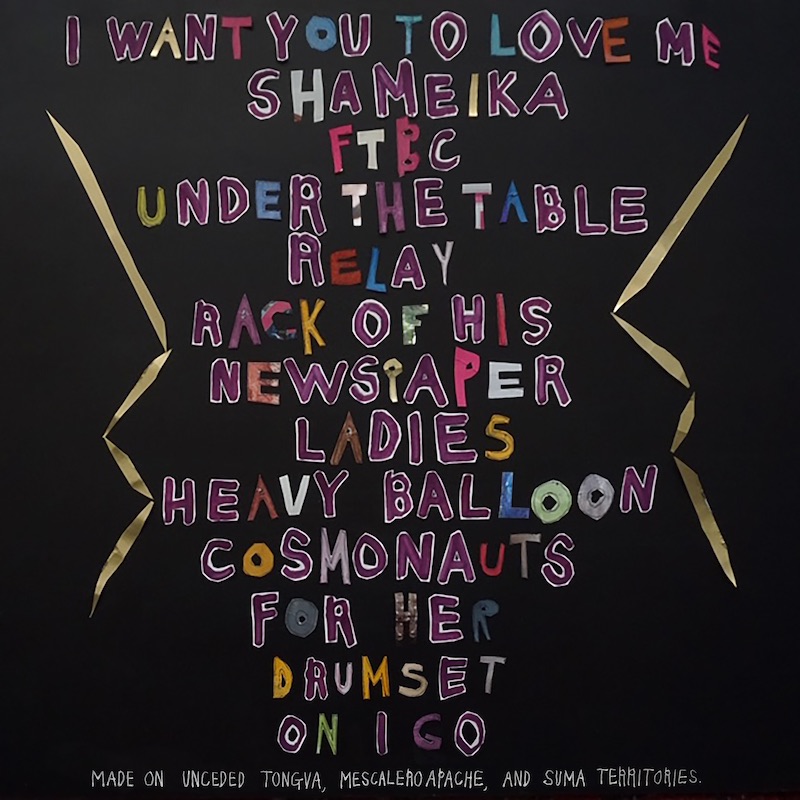 I WANT YOU TO LOVE ME
SHAMEIKA
FTBC
UNDER THE TABLE
RELAY
RACK OF HIS
NEWSPAPER
LADIES
HEAVY BALLOON
COSMONAUTS
FOR HER
DRUMSET
ON I GO
MADE ON UNCEDED TONGVA, MESCALERO APACHE, AND SUMA TERRITORIES.